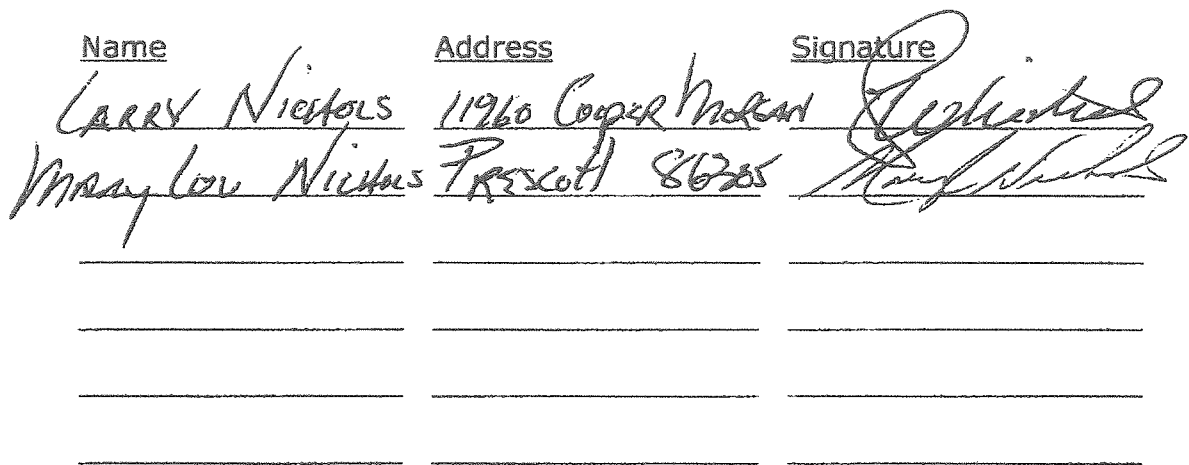 Name Address Signature
Larry Nichols 11960 Cooper Morgan
Mary Lou Nichols Prescott 86305 Mary Nichols